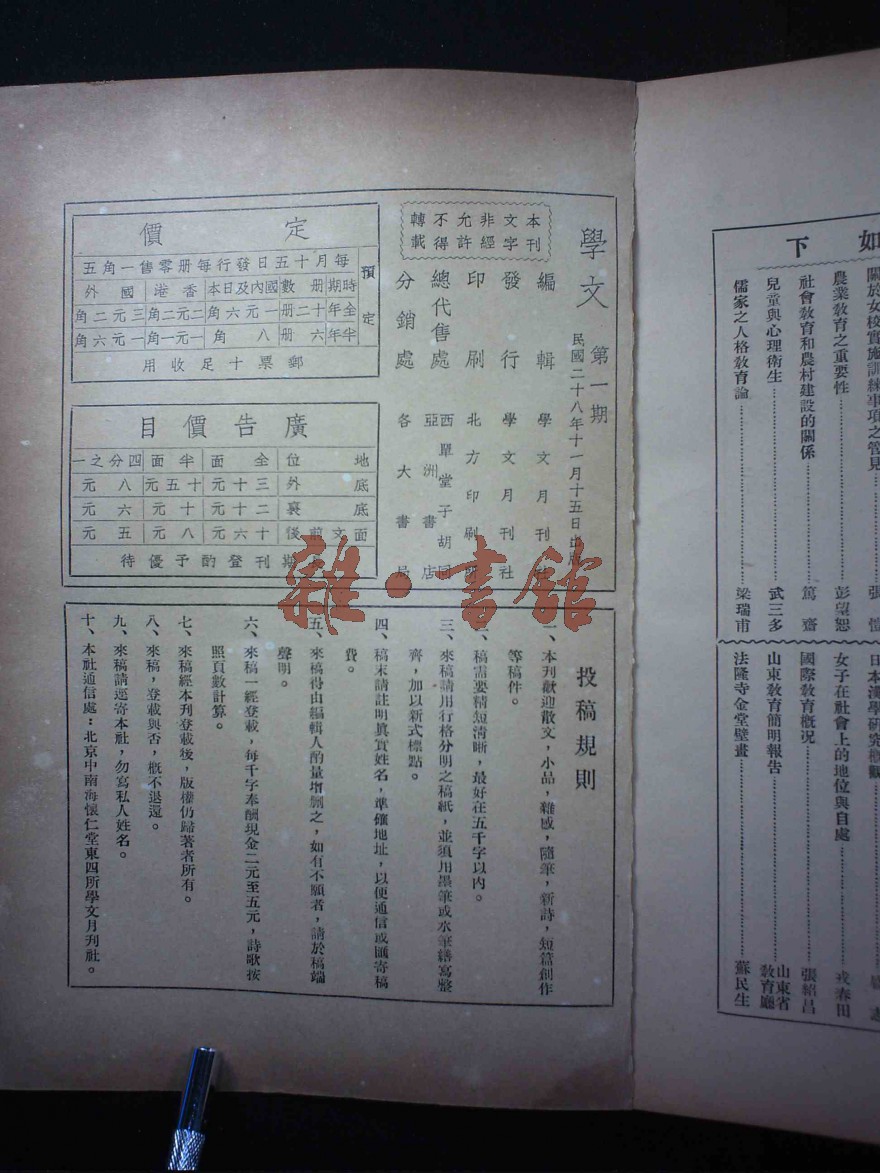 如下
關於女校實施訓練事項之管見
張
農業教育之重要性
彭望恕
社會教育和農村建設的關係
篤齋
兒童與心理衛生
武三多
儒家之人格教育論
梁瑞甫
日本漢學研究概觀
女子在社會上的地位與自處
戎春田
國際教育概况
張紹昌
山東教育簡明報告
山東省教育廳
法隆寺金堂壁畫
蘇民生
學文 第一期
民國二十八年十一月十五日出版
本刊文字非經允許不得轉載
編輯 學文月刊社
發行 學文月刊社
印刷 北方印刷所
總代售處 西單堂子胡同 亞洲書店
分銷處 各大書局
定價
每月十五日發行每册零售一角五
預定
時期 册數 國內及日本 香港 國外
全年 十二册 一元六角 二元二角 三元二角
半年 六册 八角 一元一角 一元六角
郵票十足收用
廣告價目
地位 全面 半面 四分之一
底外 三十元 十五元 八元
底裏 二十元 十元 六元
面文前後 十六元 八元 五元
長期刊登酌予優待
投稿規則
一、本刊歡迎散文，小品，雜感，隨筆，新詩，短篇創作
等稿件。
二、稿需要精短清晰，最好在五千字以內。
三、來稿請用行格分明之稿紙，並須用墨筆或水筆繕寫整
齊，加以新式標點。
四、稿末請註明真實姓名，準確地址，以便通信或匯寄稿
費。
五、來稿得由編輯人酌量增删之，如有不願者，請於稿端
聲明。
六、來稿一經登載，每千字奉酬現金二元至五元，詩歌按
照頁數計算。
七、來稿經本刊登載後，版權仍歸著者所有。
八、來稿，登載與否，概不退還。
九、來稿請逕寄本社，勿寫私人姓名。
十、本社通信處：北京中南海懷仁堂東四所學文月刊社。
雜·書館